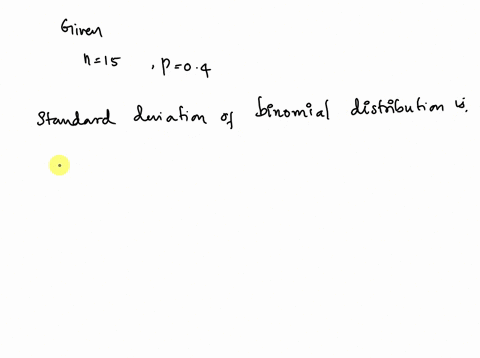 Given
n=15 , p=0.4
Standard deviation of binomial distribution is.